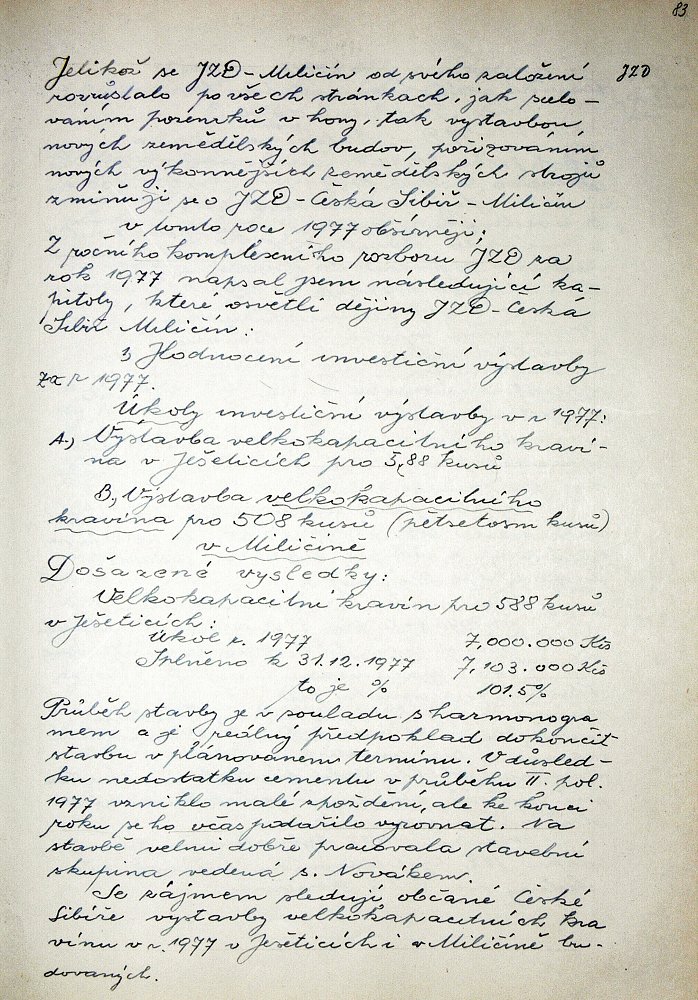 83
Jelikož se JZD-Miličín od svého založení JZD
rozrůstalo po všech stránkach, jak scelo-
vaním pozemků v hony, tak vystavbou
nových zemědělských budov, pořizováním
nových výkonnějších zemědělských strojů
zmiňuji se o JZD-Česká Sibiř-Miličín
v tomto roce 1977 obšírněji:
Z ročního komplexního rozboru JZD za
rok 1977 napsal jsem následující ka-
pitoly, které osvětlí dějiny JZD-Česká
Sibiř Miličín:
3, Hodnocení investiční výstavby
za r 1977.
Úkoly investiční výstavby v r 1977:
A., Výstavba velkokapacitního kraví-
na v Ješeticích pro 588 kusů
B., Výstavba velkokapacitního
kravína pro 508 kusů (pětsetosm kusů)
v Miličíně
Dosažené vysledky:
Velkokapacitní kravín pro 588 kusů
v Ješeticích:
Úkol r. 1977 7,000.000 Kčs
Splněno k 31.12.1977 7,103.000 Kčs
to je % 101.5%
Průběh stavby je v souladu s harmonogra
mem a je reálný předpoklad dokončit
stavbu v plánovanem termínu. V důsled-
ku nedostatku cementu v průběhu II. pol.
1977 vzniklo malé zpoždění, ale ke konci
roku se ho včas podařilo vyrovnat. Na
stavbě velmi dobře pracovala stavební
skupina vedená s. Novákem.
Se zájmem sledují občané České
Sibiře výstavby velkokapacitních kra
vínu v r. 1977 v Ješeticích i v Miličíně bu-
dovaných.